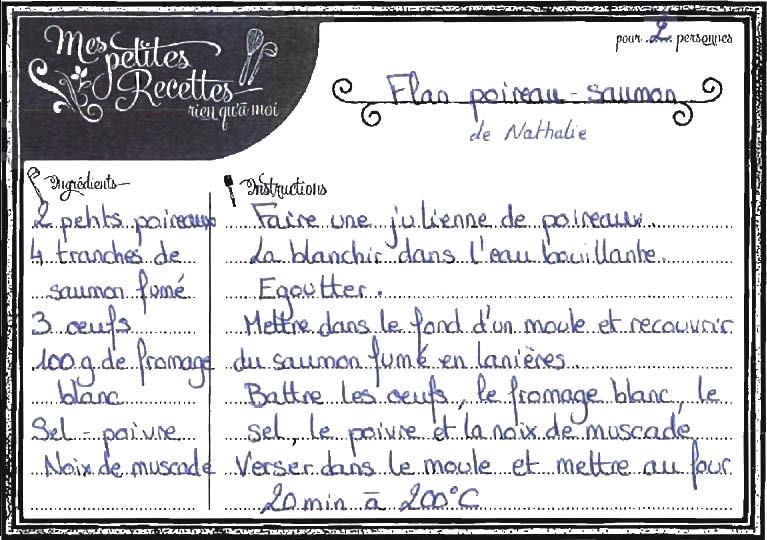 Mes
petites
Recettes
rien qu'à moi
pour 2 personnes
Flan poireau - saumon
de Nathalie
Ingrédients
2 petits poireaux
4 tranches de
saumon fumé
3 œufs
100g de fromage
blanc
Sel - poivre
Noix de muscade
Instructions
Faire une julienne de poireaux.
La blanchir dans l'eau bouillante.
Egoutter.
Mettre dans le fond d'un moule et recouvrir
du saumon fumé en lanières.
Battre les œufs, le fromage blanc, le
sel, le poivre et la noix de muscade
Verser dans le moule et mettre au four
20 min à 200°C